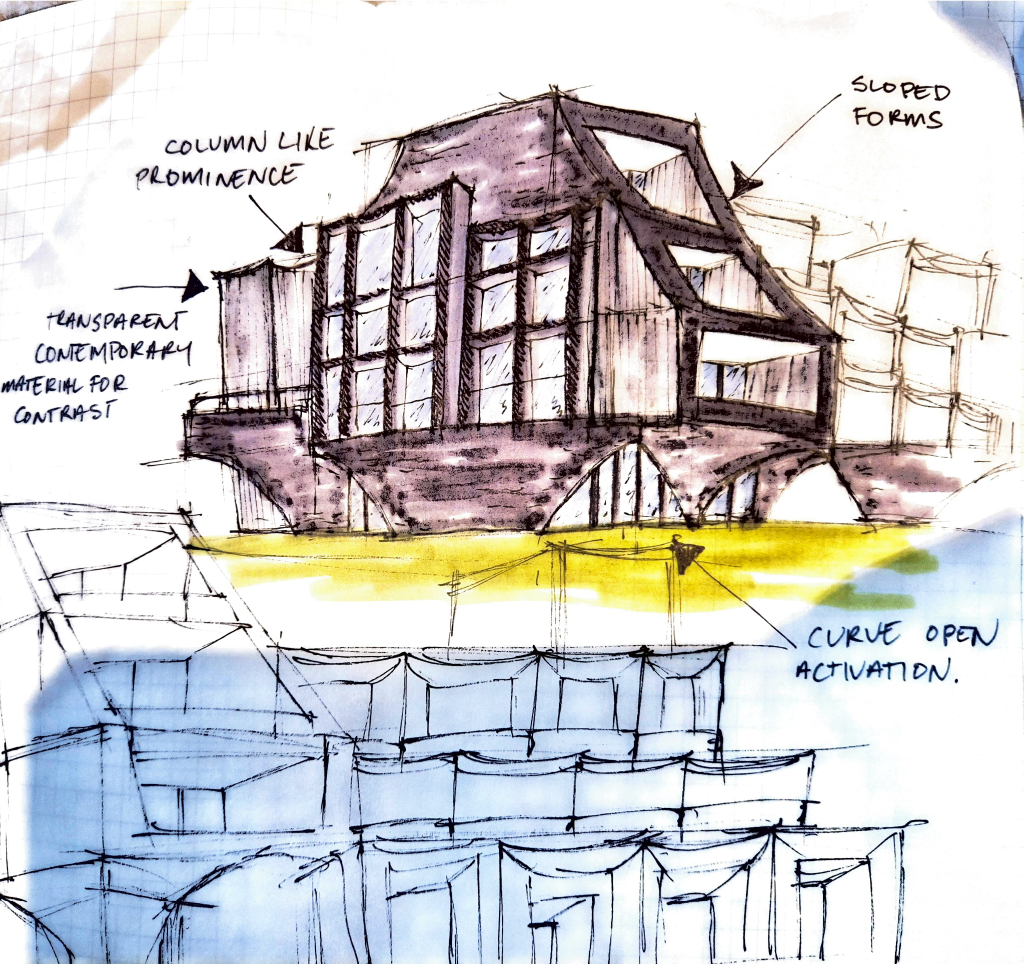 SLOPED
FORMS
COLUMN LIKE
PROMINENCE
TRANSPARENT
CONTEMPORARY
MATERIAL FOR
CONTRAST
CURVE OPEN
ACTIVATION.